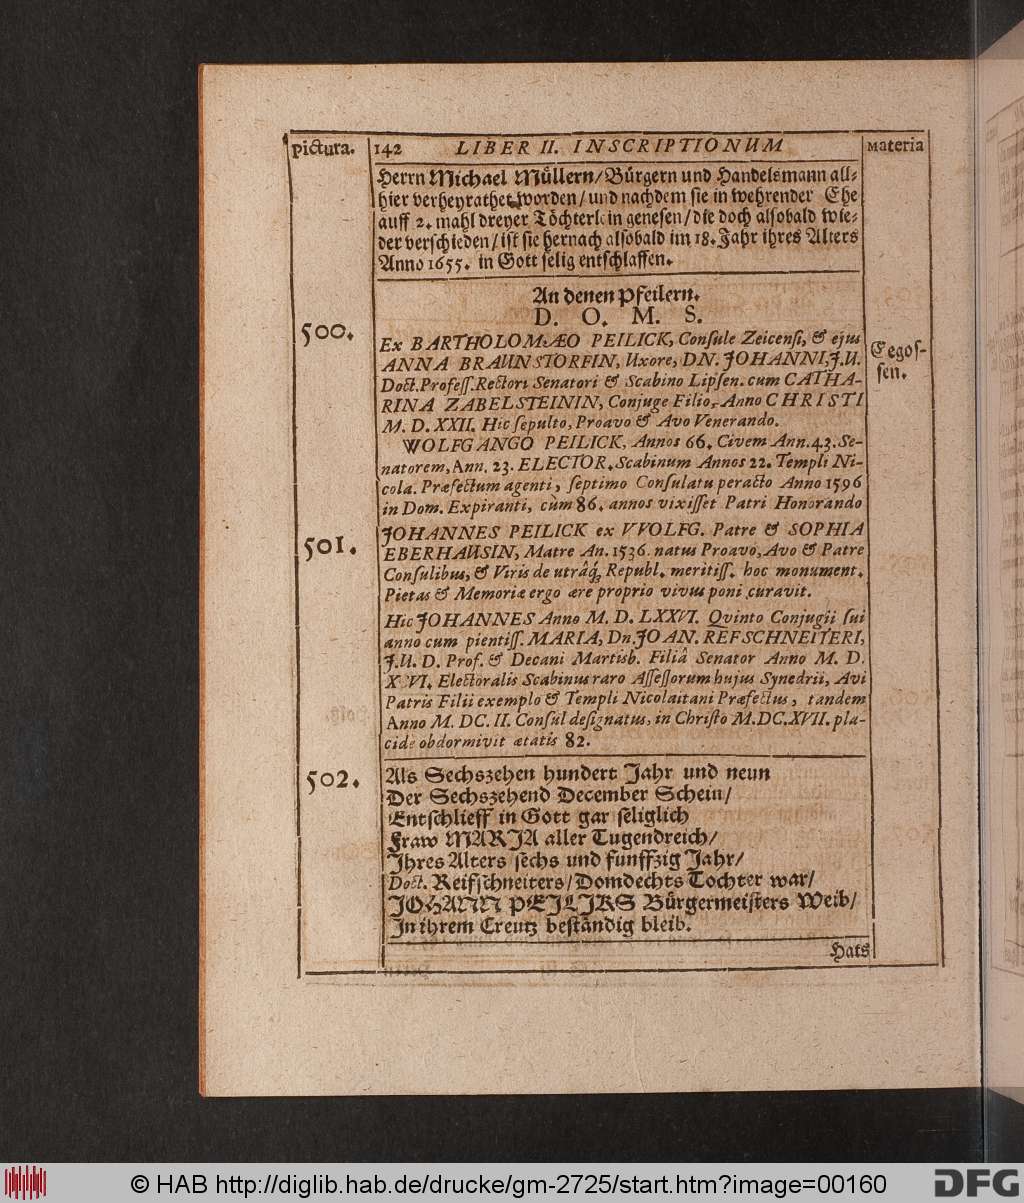 pictura. 142 LIBER II. INSCRIPTIONUM Materia
Herrn Michael Müllern/Bürgern und Handelsmann all-
hier verheyrathet worden/und nachdem sie in wehrender Ehe
auff 2. mahl dreyer Töchterlein genesen/die doch alsobald wie-
der verschieden/ist sie hernach alsobald im 18. Jahr ihres Alters
Anno 1655. in Gott selig entschlaffen.
An denen Pfeilern.
D. O. M. S.
500.
Ex BARTHOLOMÆO PEILICK, Conſule Zeicenſi, & ejus
ANNA BRAUNSTORFIN, Uxore, DN. JOHANNI, J.U.
Doct. Profeſſ. Rectori Senatori & Scabino Lipſen. cum CATHA-
RINA ZABELSTEININ, Conjuge Filio, Anno CHRISTI
M. D. XXII. Hic ſepulto, Proavo & Avo Venerando.
Eegos-
sen.
WOLFGANGO PEILICK, Annos 66. Civem Ann. 43. Se-
natorem, Ann. 23. ELECTOR. Scabinum Annos 22. Templi Ni-
cola. Præfectum agenti, ſeptimo Conſulatu peracto Anno 1596
in Dom. Expiranti, cùm 86. annos vixiſſet Patri Honorando
501.
JOHANNES PEILICK ex VVOLFG. Patre & SOPHIA
EBERHAUSIN, Matre An. 1536. natus Proavo, Avo & Patre
Conſulibus, & Viris de utrâq́; Republ. meritiſſ. hoc monument.
Pietas & Memoriæ ergo ære proprio vivus poni curavit.
Hic JOHANNES Anno M. D. LXXVI. Qvinto Conjugii ſui
anno cum pientiſſ. MARIA, Dn. JOAN. REFSCHNEITERI,
J.U. D. Prof. & Decani Martisb. Filiâ Senator Anno M. D.
XCVI. Electoralis Scabinus raro Aſſeſſorum hujus Synedrii, Avi
Patris Filii exemplo & Templi Nicolaitani Præfectus, tandem
Anno M. DC. II. Conſul deſignatus, in Chriſto M.DC.XVII. pla-
cide obdormivit ætatis 82.
502.
Als Sechszehen hundert Jahr und neun
Der Sechszehend December Schein/
Entschlieff in Gott gar seliglich
Fraw MARJA aller Tugendreich/
Ihres Alters sechs und funffzig Jahr/
Doct. Reifschneiters/Domdechts Tochter war/
JOHANN PEILJKS Bürgermeisters Weib/
In ihrem Creutz beständig bleib.
Hats
© HAB http://diglib.hab.de/drucke/gm-2725/start.htm?image=00160
DFG